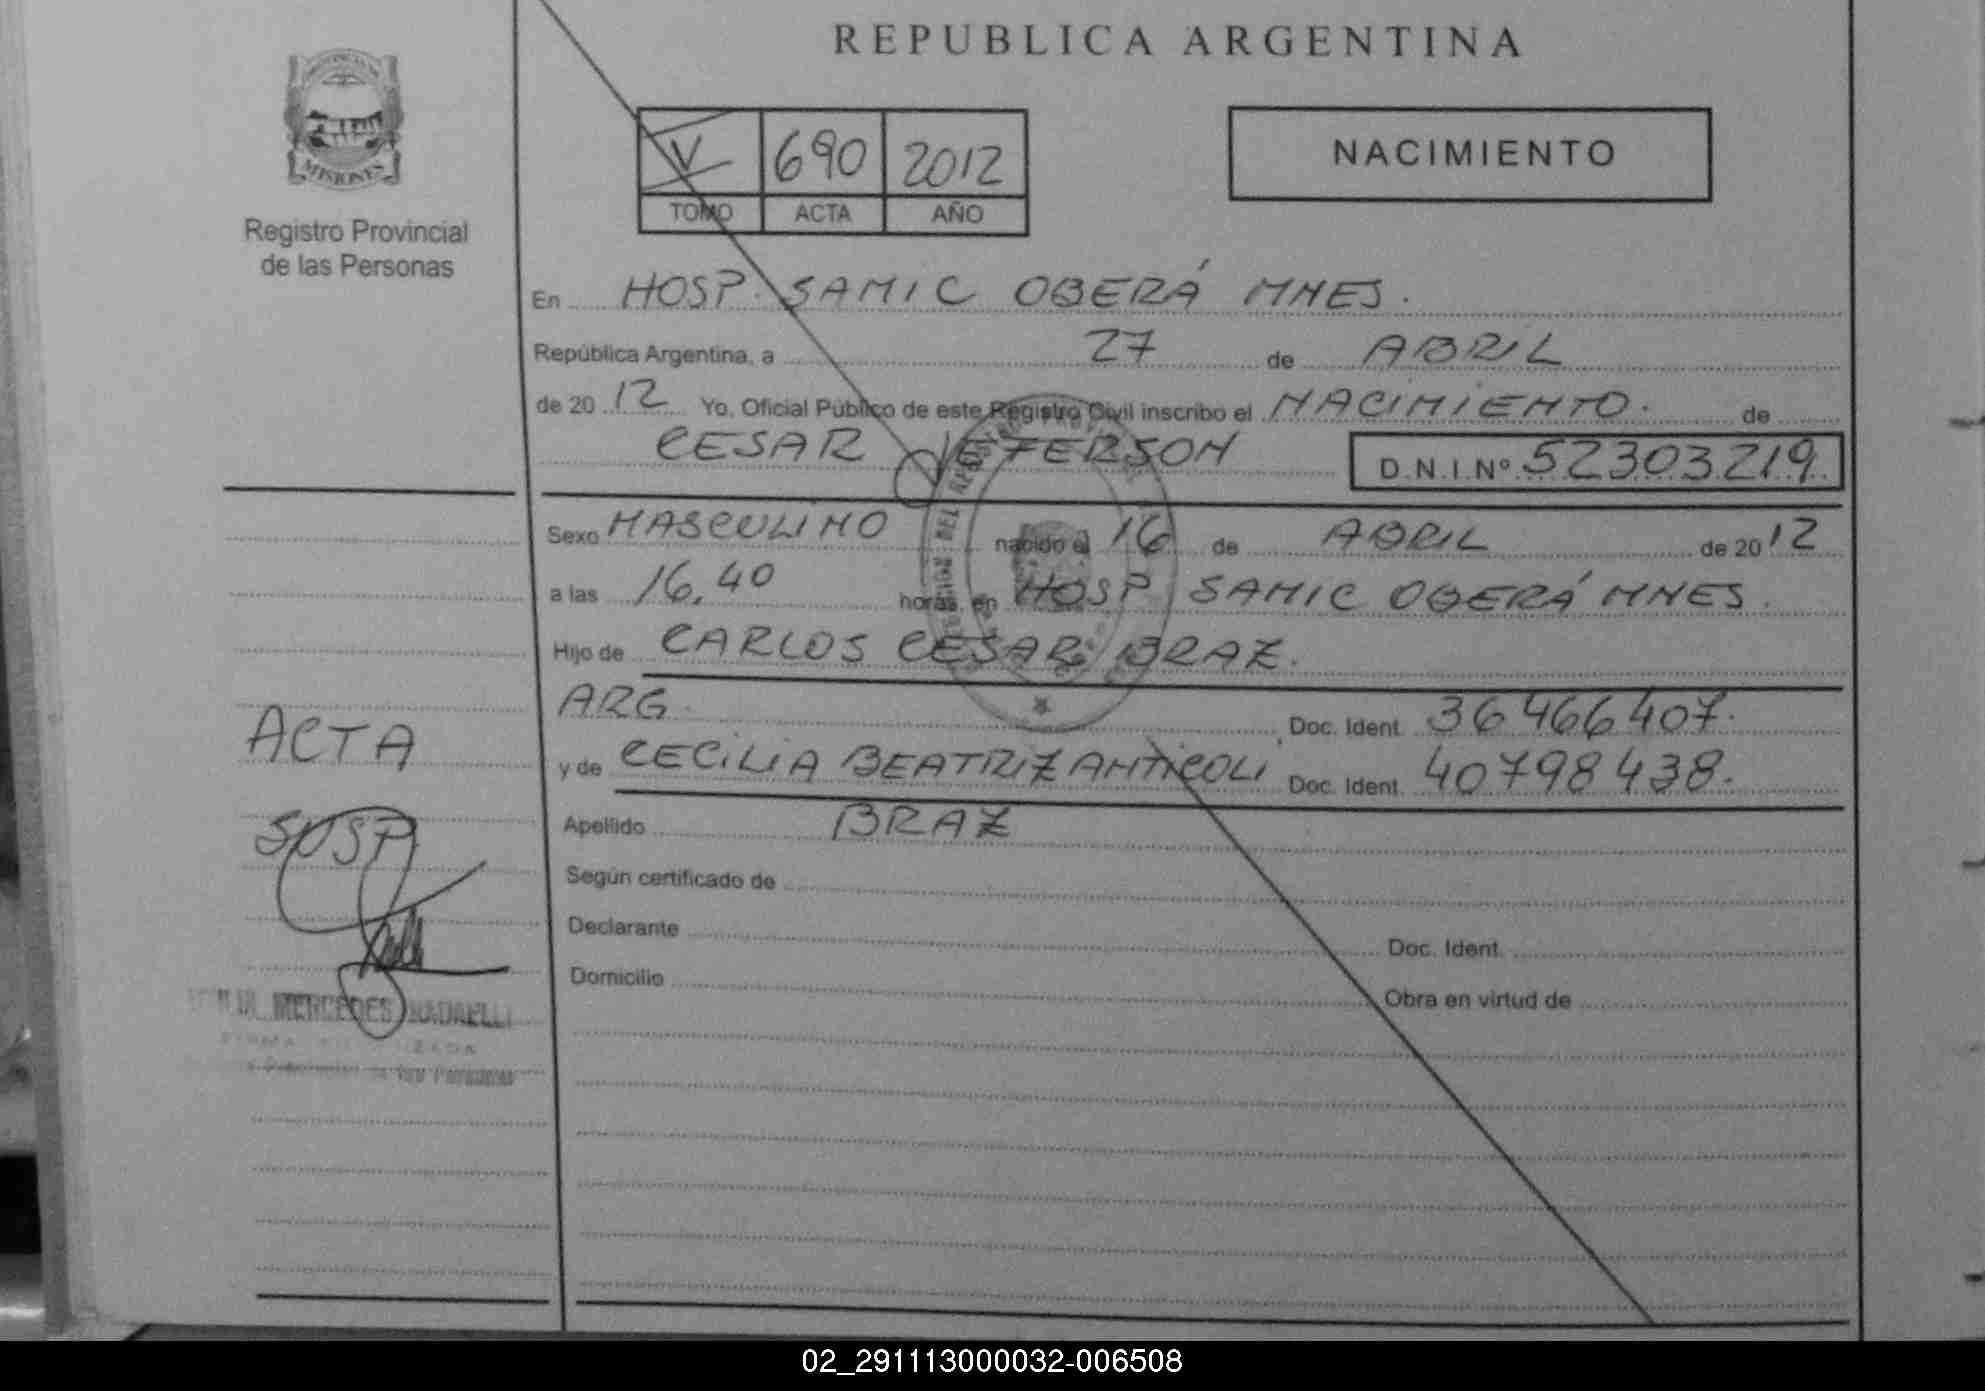 REPUBLICA ARGENTINA
MISIONES
Registro Provincial
de las Personas
V 690 2012
TOMO ACTA AÑO
NACIMIENTO
En HOSP. SAMIC OBERÁ MNES.
República Argentina, a 27 de ABRIL
de 20 12 Yo, Oficial Público de este Registro Civil inscribo el NACIMIENTO. de
CESAR JEFERSON D.N.I.Nº 52303219
Sexo MASCULINO nacido el 16 de ABRIL de 20 12
a las 16,40 horas, en HOSP SAMIC OBERÁ MNES.
Hijo de CARLOS CESAR BRAZ.
ARG. Doc. Ident. 36466407.
y de CECILIA BEATRIZ ANTICOLI, Doc. Ident. 40798438.
Apellido BRAZ
Según certificado de
Declarante Doc. Ident.
Domicilio Obra en virtud de
ACTA
SUSP
MERCEDES
de las Personas
02_291113000032-006508